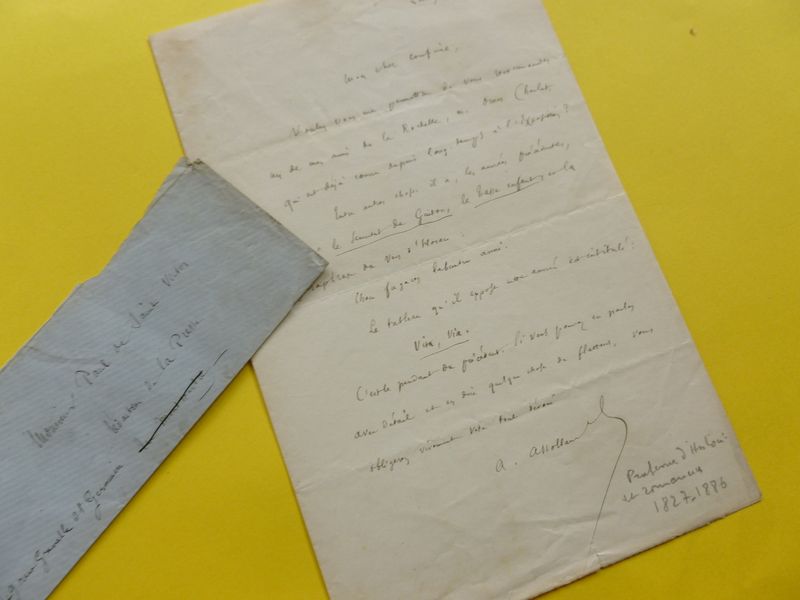 Mon cher confrère,
Voulez vous me permettre de vous recommander
un de mes amis de la Rochelle, M. Omer Charlet,
qui est déjà connu depuis long temps à l'Exposition?
Entre autres choses il a, les années précédentes,
le Serment de Guiton, le Tasse enfant, et la
du
Le tableau qu'il expose cette année est intitulé:
C'est le pendant du précédent. Si vous pouvez en parler
avec détail et en dire quelque chose de flatteur, vous
obligerez vivement votre tout dévoué
A. Assollant
Professeur d'histoire
et romancier
1827-1886
Monsieur Paul de Saint Victor
de la Presse
rue Grenelle St Germain